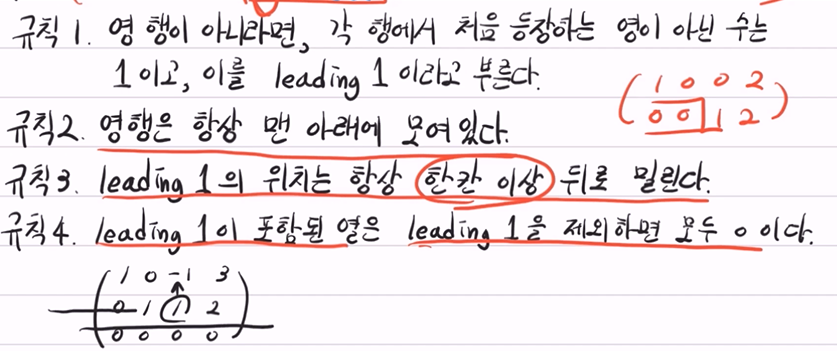 규칙 1. 영 행이 아니라면, 각 행에서 처음 등장하는 영이 아닌 수는
1 이고, 이를 leading 1 이라고 부른다.
( 1 0 0 2
0 0 1 2 )
규칙2. 영행은 항상 맨 아래에 모여있다.
규칙3. leading 1의 위치는 항상 한칸 이상 뒤로 밀린다.
규칙4. leading 1이 포함된 열은 leading 1을 제외하면 모두 0 이다.
( 1 0 -1 3
0 1 1 2
0 0 0 0 )